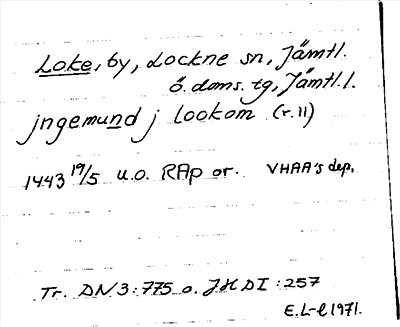 Loke, by, Lockne sn, Jämtl.
ö. doms. tg, Jämtl. l.
jngemund j lookom (r. 11)
1443 19/5 u.o. RAp or. VHAA's dep.
Tr. DN 3:775 o. JHD I:257
E.L-l 1971.